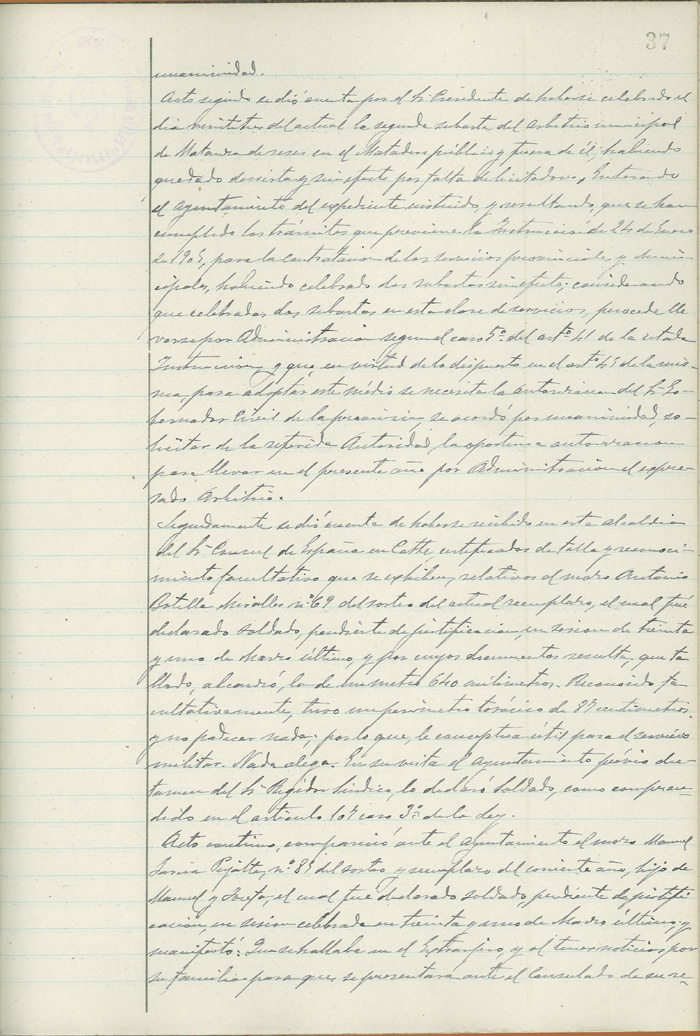 37
unanimidad.
Acto seguido se dió cuenta por el Sr. Presidente de haberse celebrado el
día veintitres del actual la segunda subasta del arbitrio municipal
de Matanza de reses en el Matadero público y fuera de él, habiendo
quedado desierta y sin efecto por falta de licitadores, Enterado
el Ayuntamiento del expediente instruido y resultando, que se han
cumplido los trámites que previene la Instruccion de 24 de Enero
de 1905, para la contratacion de los servicios provinciales y muni-
cipales, habiendo celebrado dos subastas sin efecto; considerando
que celebradas dos subastas en esta clase de servicios, procede lle
varse por Administracion segun el caso 5º del artº 41 de la citada
Instruccion, y que, en virtud de lo dispuesto en el artº 43 de la mis-
ma, para adoptar este médio se necesita la autorizacion del Sr. Go-
bernador Civil de la provincia, se acordó por unanimidad, so-
licitar de la referida Autoridad, la oportuna autorizacion
para llevar en el presente año por Administracion el expre-
sado Arbitrio.
Seguidamente se dió cuenta de haberse recibido en esta alcaldia
del Sr. Consul de España en Cette, certificados de talla y reconoci-
miento facultativo que se exhiben, relativos al mozo Antonio
Botella Miralles nº 69 del sorteo del actual reemplazo, el cual fué
declarado soldado, pendiente de justificacion, en sesion de treinta
y uno de Marzo último, y por cuyos documentos resulta, que ta
llado, alcanzó, la de un metro 640 milimetros. Reconocido, fa
cultativamente, tuvo un perimetro torácico de 87 centimetros,
y no padecer nada; por lo que, le conceptua útil para el servicio
militar. Nada alega. En su vista el Ayuntamiento prévio dic-
tamen del Sr. Regidor Sindico, lo declaró soldado, como compren-
dido en el articulo 107 caso 3º de la ley.
Acto continuo, compareció ante el Ayuntamiento el mozo Manuel
nº 83 del sorteo y reemplazo del corriente año, hijo de
Manuel y Josefa, el cual fué declarado soldado, pendiente de justifi
cacion, en sesion celebrada en treinta y uno de Marzo último, y
manifestó: Que se hallaba en el Extranjero, y al tener noticias, por
su familia para que, se presentara ante el Consulado de su re-